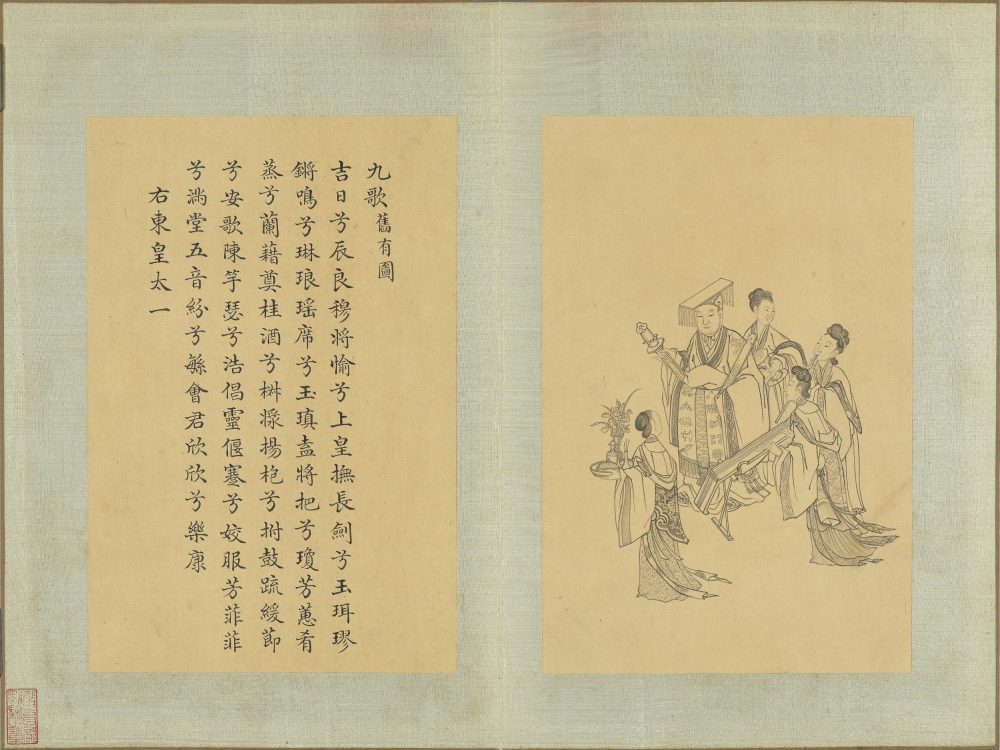 九歌舊有圖
吉日兮辰良穆將愉兮上皇撫長劍兮玉珥璆
鏘鳴兮琳琅瑤席兮玉瑱盍將把兮瓊芳蕙肴
蒸兮蘭藉奠桂酒兮椒漿揚枹兮拊鼓疏緩節
兮安歌陳竽瑟兮浩倡靈偃蹇兮姣服芳菲菲
兮滿堂五音紛兮緐會君欣欣兮樂康
右東皇太一